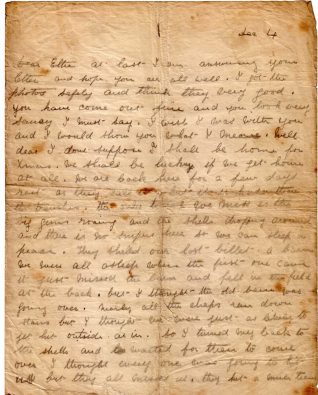 Dec 4
Dear Ettie at last I am answering your
letter and hope you are all well. I got the
photos safely and think they very good.
you have come out fine and you look very
saucy I must say. I wish I was with you
and I would show you what I means. Well
dear I dont suppose I shall be home for
Xmas. We shall be lucky if we get home
at all. We are back here for a few days
rest as they call it but it is
the trenches. the
big guns roaring and the shells droping around
and there is no snipers here so we can sleep in
peace. They shelled our last billet a barn
We were all asleep when the first one came
it just missed the barn and fell in the field
at the back. but I thought the old barn was
going over. nearly all the chaps ran down
stairs but I thought we were just as likely to
get hit outside as in. so I turned my back to
the shells and waited for them to come
over I thought every one was going to hit
us but they all missed us. they hit a